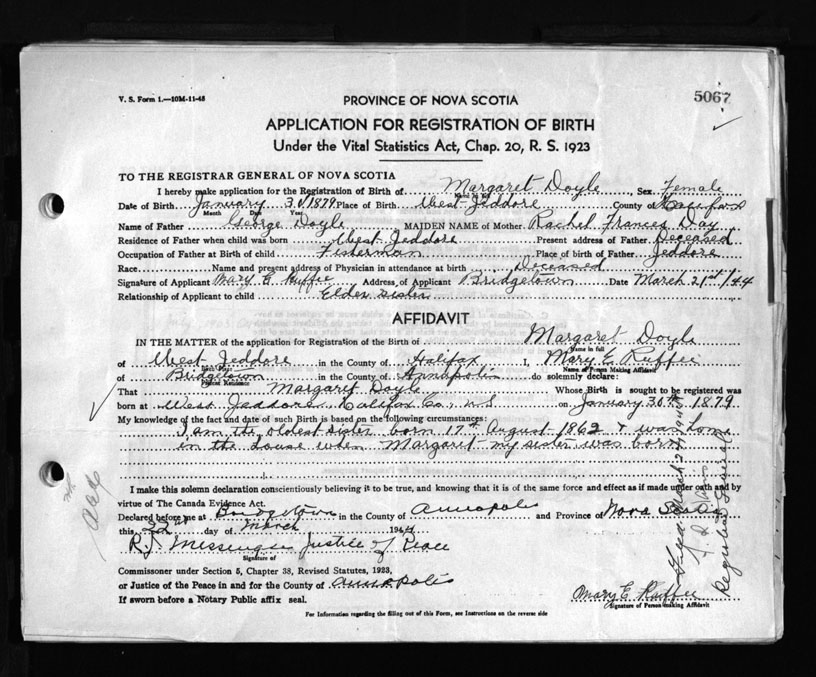 V. S. Form 1.—10M-11-43
5067
PROVINCE OF NOVA SCOTIA
APPLICATION FOR REGISTRATION OF BIRTH
Under the Vital Statistics Act, Chap. 20, R. S. 1923
TO THE REGISTRAR GENERAL OF NOVA SCOTIA
I hereby make application for the Registration of Birth of Margaret Doyle, Sex Female
Date of Birth January 30/1879 Place of Birth West Jeddore County of Halifax
Month Date Year
Name of Father George Doyle MAIDEN NAME of Mother Rachel Frances Day
Residence of Father when child was born West Jeddore Present address of Father Deceased
Occupation of Father at Birth of child Fisherman Place of birth of Father Jeddore
Race Name and present address of Physician in attendance at birth Deceased
Signature of Applicant Mary E Ruffee Address of Applicant Bridgetown Date March 21st/44
Relationship of Applicant to child Elder sister
AFFIDAVIT
IN THE MATTER of the application for Registration of the Birth of Margaret Doyle
Name in full
of West Jeddore in the County of Halifax I, Mary E. Ruffee
Birth Place Name of Person Making Affidavit
of Bridgetown in the County of Annapolis do solemnly declare:
Present Residence
That Margaret Doyle Whose Birth is sought to be registered was
born at West Jeddore Halifax Co., N.S on January 30th 1879
My knowledge of the fact and date of such Birth is based on the following circumstances:
I am the oldest sister born 17th August 1862 & was home
in the house when Margaret my sister was born
I make this solemn declaration conscientiously believing it to be true, and knowing that it is of the same force and effect as if made under oath and by
virtue of The Canada Evidence Act.
Declared before me at Bridgetown in the County of Annapolis and Province of Nova Scotia
this 22nd day of March 1944
R. J. Messinger Justice of Peace
Signature of
Commissioner under Section 5, Chapter 38, Revised Statutes, 1923,
or Justice of the Peace in and for the County of Annapolis
If sworn before a Notary Public affix seal.
Mary E Ruffee
Signature of Person making Affidavit
For Information regarding the filling out of this Form, see Instructions on the reverse side
Registrar General